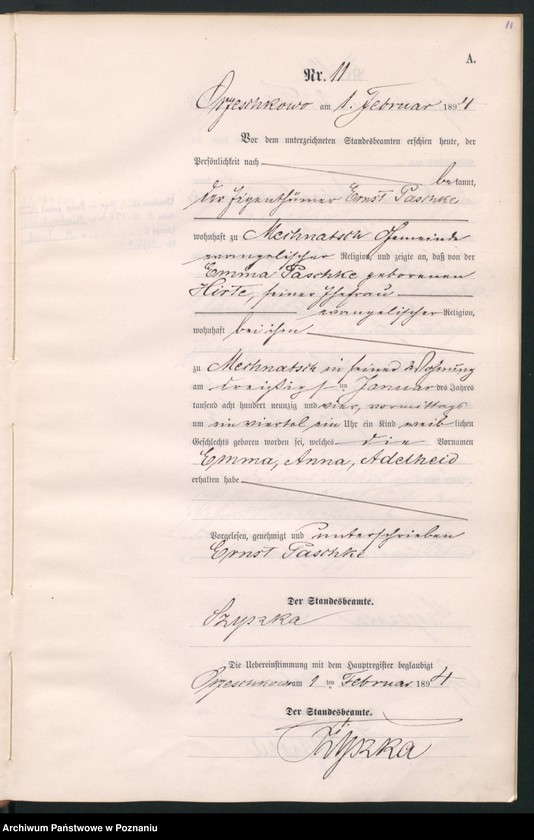 11
A.
Nr. 11
Orzeschkowo am 1. Februar 1894
Vor dem unterzeichneten Standesbeamten erschien heute, der
Persönlichkeit nach
bekannt,
der Eigenthümer Ernst Paschke
wohnhaft zu Mechnatsch Gemeinde
evangelischer Religion, und zeigte an, daß von der
Emma Paschke geborenen
Hirte, seiner Ehefrau
evangelischer Religion,
wohnhaft bei ihm
zu Mechnatsch in seiner Wohnung
am dreißigsten Januar des Jahres
tausend acht hundert neunzig und vier, vormittags
um ein viertel ein Uhr ein Kind weiblichen
Geschlechts geboren worden sei, welches die Vornamen
Emma, Anna, Adelheid
erhalten habe
Vorgelesen, genehmigt und unterschrieben
Ernst Paschke
Der Standesbeamte.
Szyszka
Die Uebereinstimmung mit dem Hauptregister beglaubigt
Orzeschkowo am 1 ten Februar 1894
Der Standesbeamte.
Szyszka
Archiwum Państwowe w Poznaniu